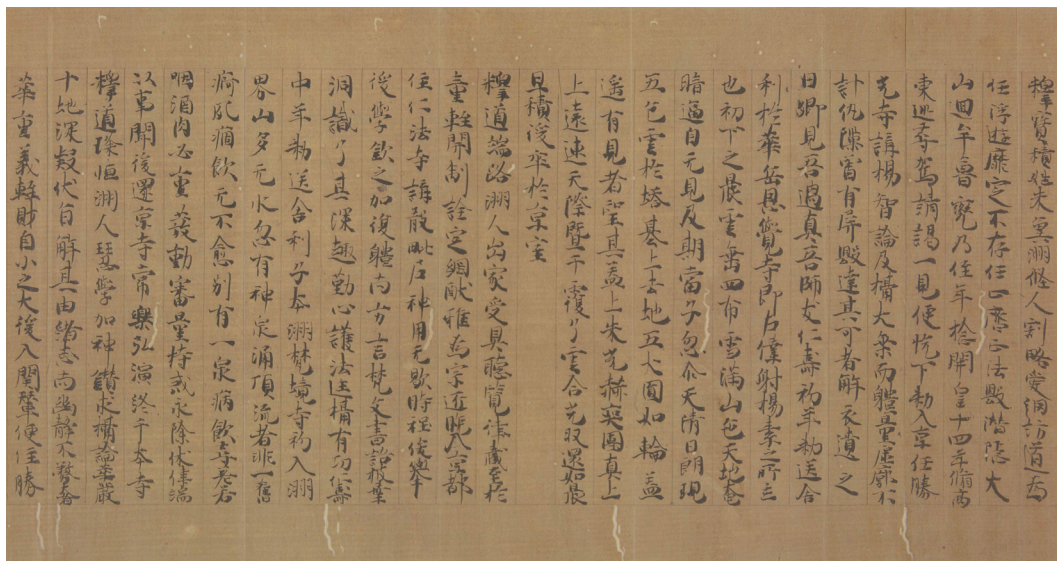 釋寶積姓朱冀州條人割略愛網訪道為
任浮遊靡定不存住止齊亡法毀潛隱大
山迴牟魯兗乃住年捻開皇十四年脩高
東巡尋駕請謁一見便悅下勑入京住勝
光寺講揚智論及攝大乘而體量虛廓不
計仇隙甞有屏毀達其耳者解衣遺之
曰卿見吾過真吾師友仁壽初年勑送舍
利於華岳思覺寺即左僕射楊素之所立
也初下之晨雲垂四布雪滿山邑天地奄
暗逼目无見及期當午忽尒天清日朗現
五色雲於塔基上去地五丈圓如輪盖
遥有見者望其盖上朱光赫奕團真上
上遠連天際暨于覆了雲合光収還如晨
旦積後卒於京室
釋道端潞州人出家受具聽覽律藏至於
重輕開制詮定綱猷雅為宗匠晚入京都
住仁法寺講散毗尼神用无歇時程俊舉
後學欽之加復體尚方言梵文書語披葉
洞識了其深趣勤心護法匡攝有功仁壽
中年勑送舍利于本州梵境寺初入州
界山多无水忽有神泉涌頂流者非一舊
痾夙痼飲无不愈別有一泉病飲尋差若
咽酒肉必重發動審量持戒永除休儻端
以事聞後還京寺常樂弘演終于本寺
釋道璨恒州人慧學加神鑽求攝論華嚴
十地深㲉伏旨解其由緒志尚幽靜不管者
華重義輕財自小之大後入關輦便住勝